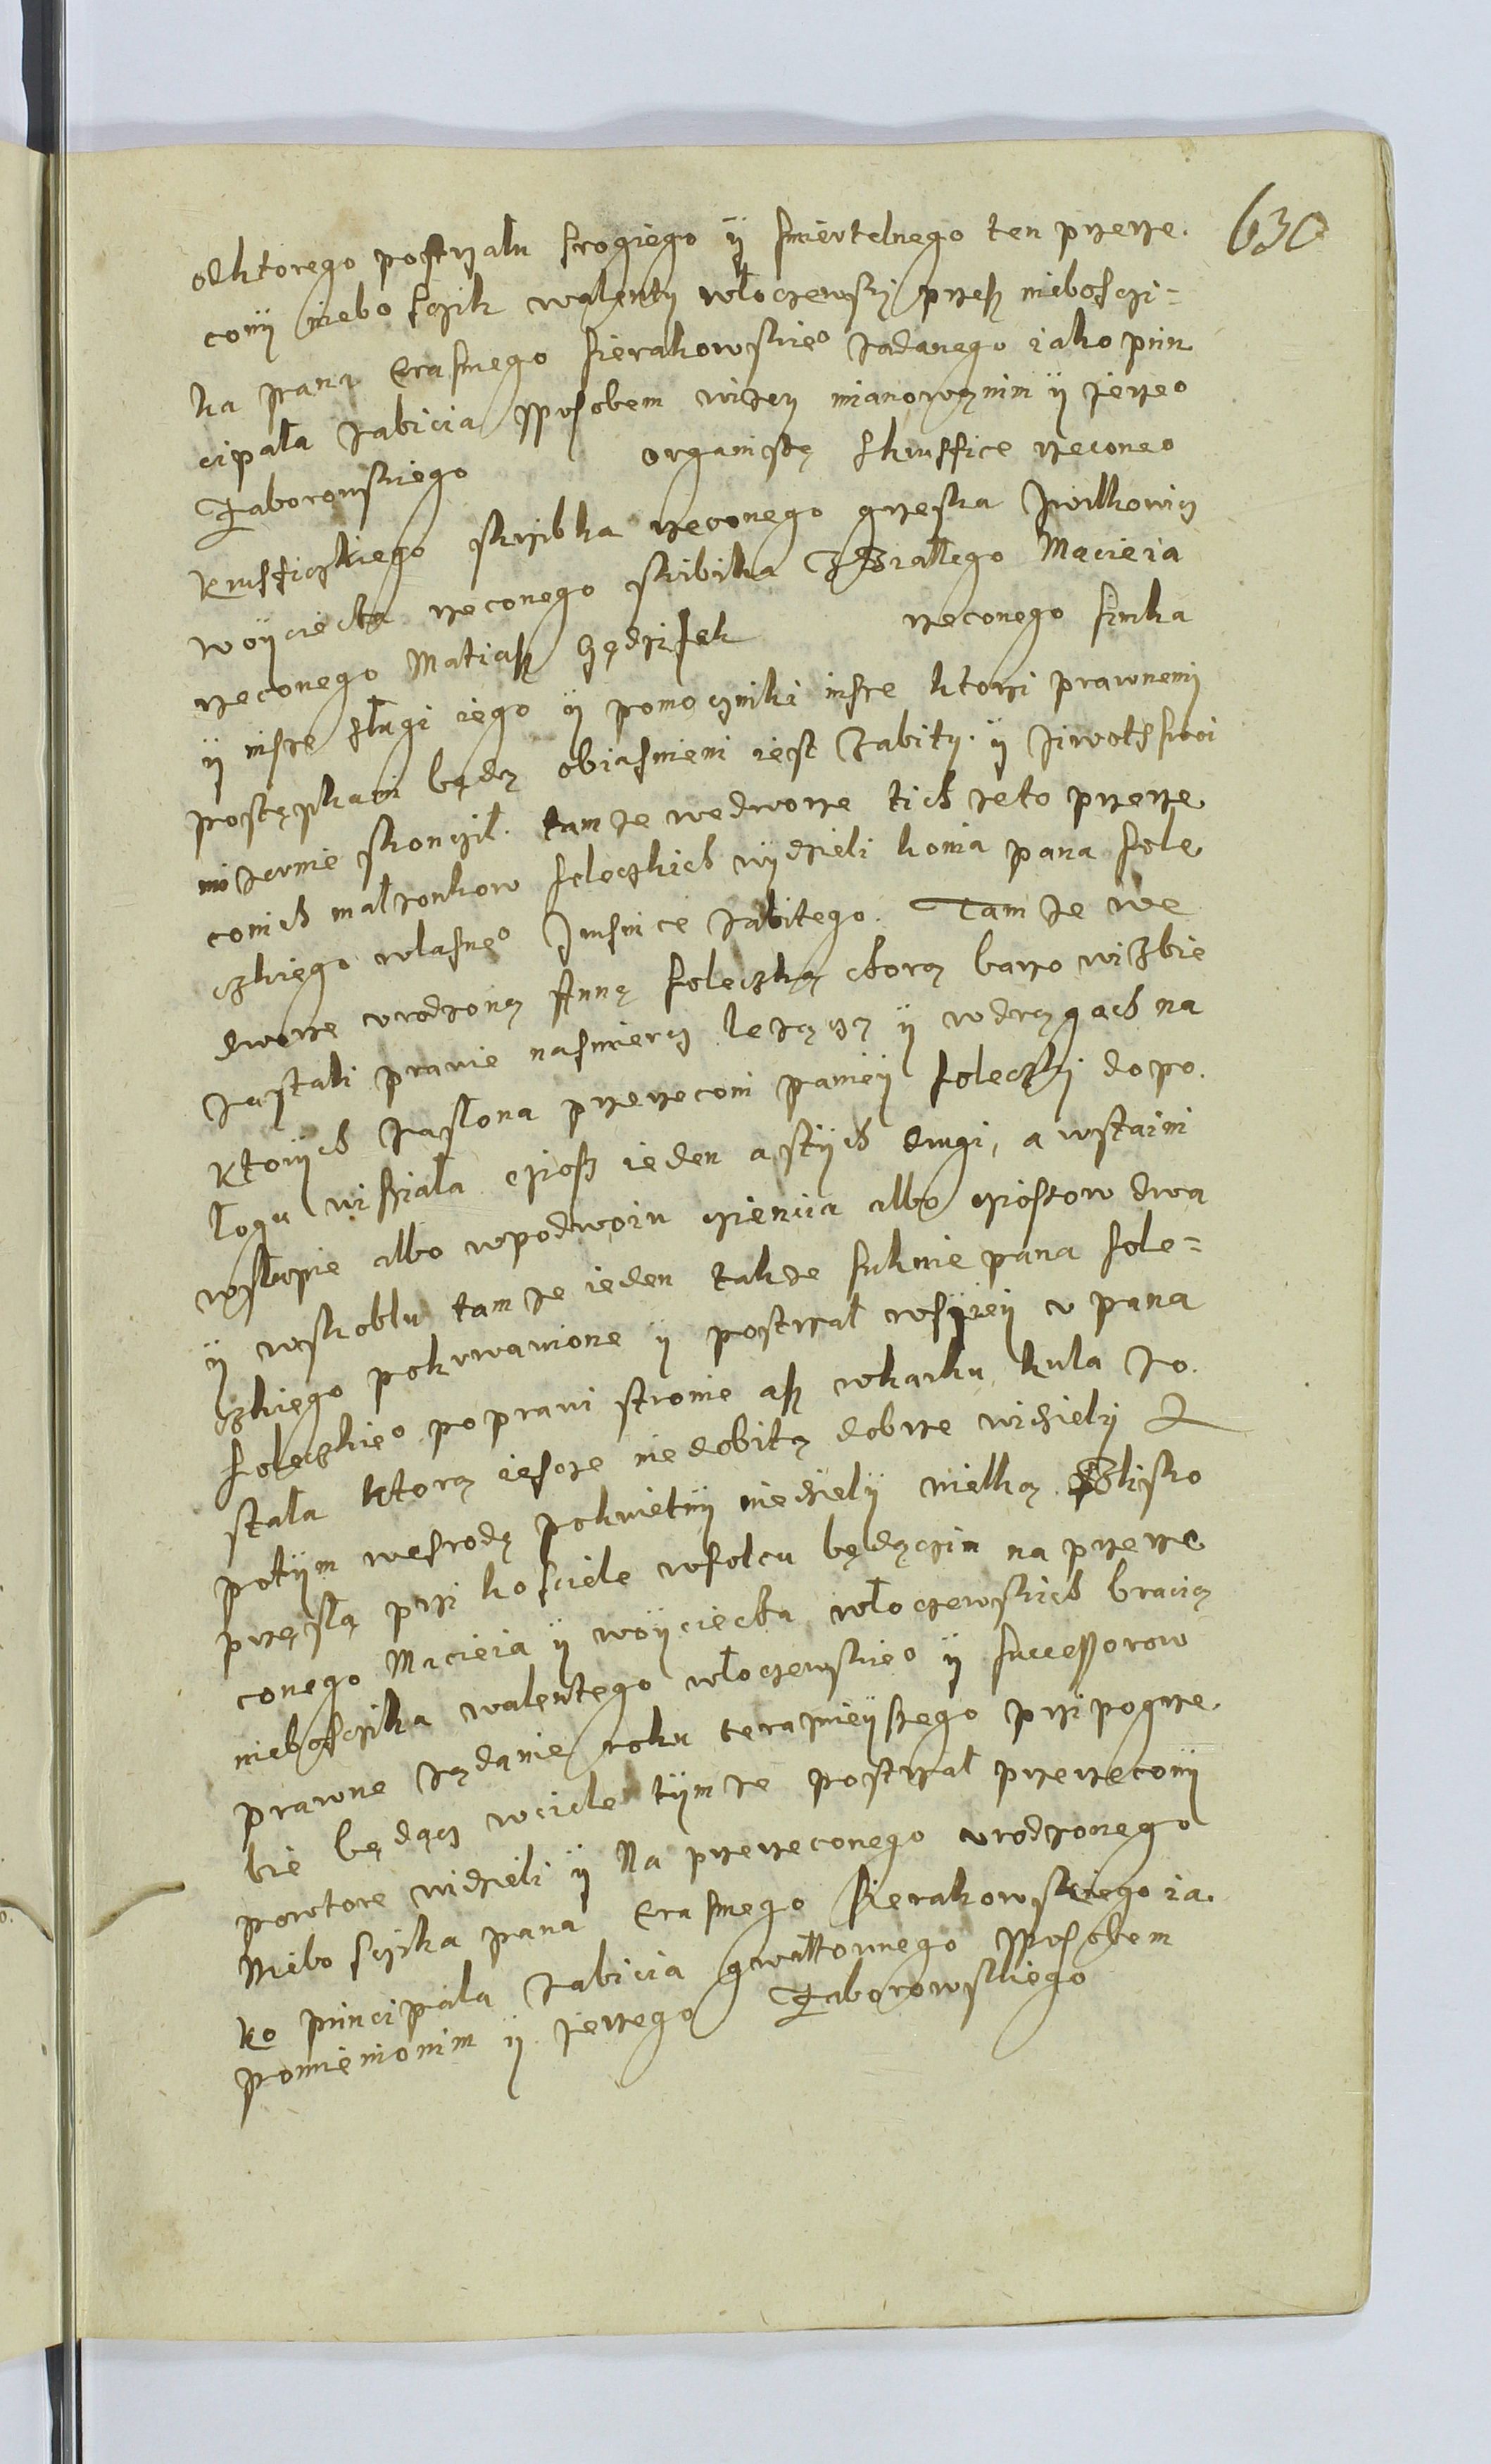 630
odktorego postrzału srogiego ÿ smiertelnego ten przerze.
conÿ niebosczik walenty włoczewskj przesz niebosczi=
ka pana Erasmego sierakowskie° zadanego iako prin
cipała zabicia sposobem wizey mianowanim ÿ ierze°
Zaborowskiego organistę skruffice rzecone°
kruffickiego skrzibka rzeconego grzeska
woÿciecha rzeconego skibika Zbiałego Macieia
rzeconego Matiasz rzeconego
ÿ insze sługi iego ÿ pomoczniki insze ktorzi prawnemi
postępkami będą obiasnieni iest Zabity. ÿ ziwoth swoi
mizernie skoncził. tamze wedworze tich zeto przerze
conich małzonkow soleczkich wÿdzieli konia pana sole
czkiego własne° zabitego. Tamze we
dworze urodzoną Annę soleczką chorą barzo wizbie
zastali prawie nasmierc lezączą ÿ wdrągach na
ktorÿch zasłona przerzeconi panieÿ soleczkj dopo.
łogu wisziała cziosz ieden astÿch drugi, a wstaini
wsłupie albo wpodwoiu czienia albo cziosow dwa
ÿ wskoblu tamze ieden takze suknie pana sole=
czkiego pokrwawione ÿ postrzał wszÿieÿ u pana
soleczkie° poprawi stronie asz wkarku kula zo.
stała ktorą iescze niedobitą dobrze widzielÿ A
potÿm wesrodę pokwietnÿ niedzielÿ wielką Blisko
przeszłą przi kosciele wsolcu będączim na przerze
conego Macieia ÿ woÿciecha włoczewskich braciey
niebosczika walentego włoczewskie° ÿ successorow
prawne ządanie roku teraznieÿszego przi pogrze.
bie będącz wciele tÿmze postrzał przerzeconÿ
powtore widzieli ÿ Na przerzeconego urodzonego
Nieboszczika pana Erasmego sierakowskiego ia.
ko principała zabicia gwałtownego sposobem
pomienionim ÿ ierzego Zaborowskiego